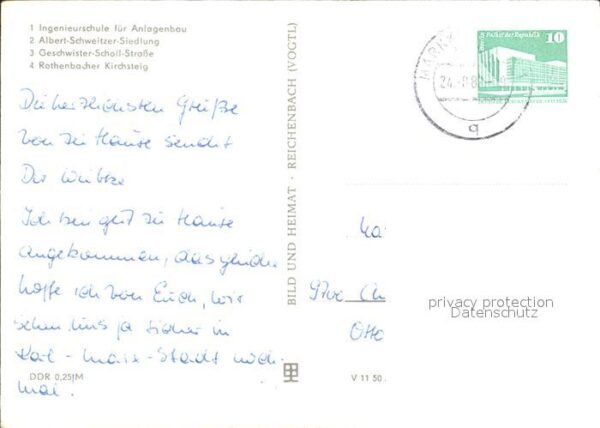 1 Ingenieurschule für Anlagenbau
2 Albert-Schweitzer-Siedlung
3 Geschwister-Scholl-Straße
4 Rothenbacher Kirchsteig
Die herzlichsten Grüße
von zu Hause sendet
Dir
Ich bin gut zu Hause
angekommen, das gleiche
hoffe ich von Euch, wir
sehen uns ja sicher in
Karl-Marx-Stadt noch-
mal.
DDR 0,25 M
BILD UND HEIMAT · REICHENBACH (VOGTL)
V 11 50
MARK
24.
q
Palast der Republik
10
Ma
970
Otto
privacy protection
Datenschutz